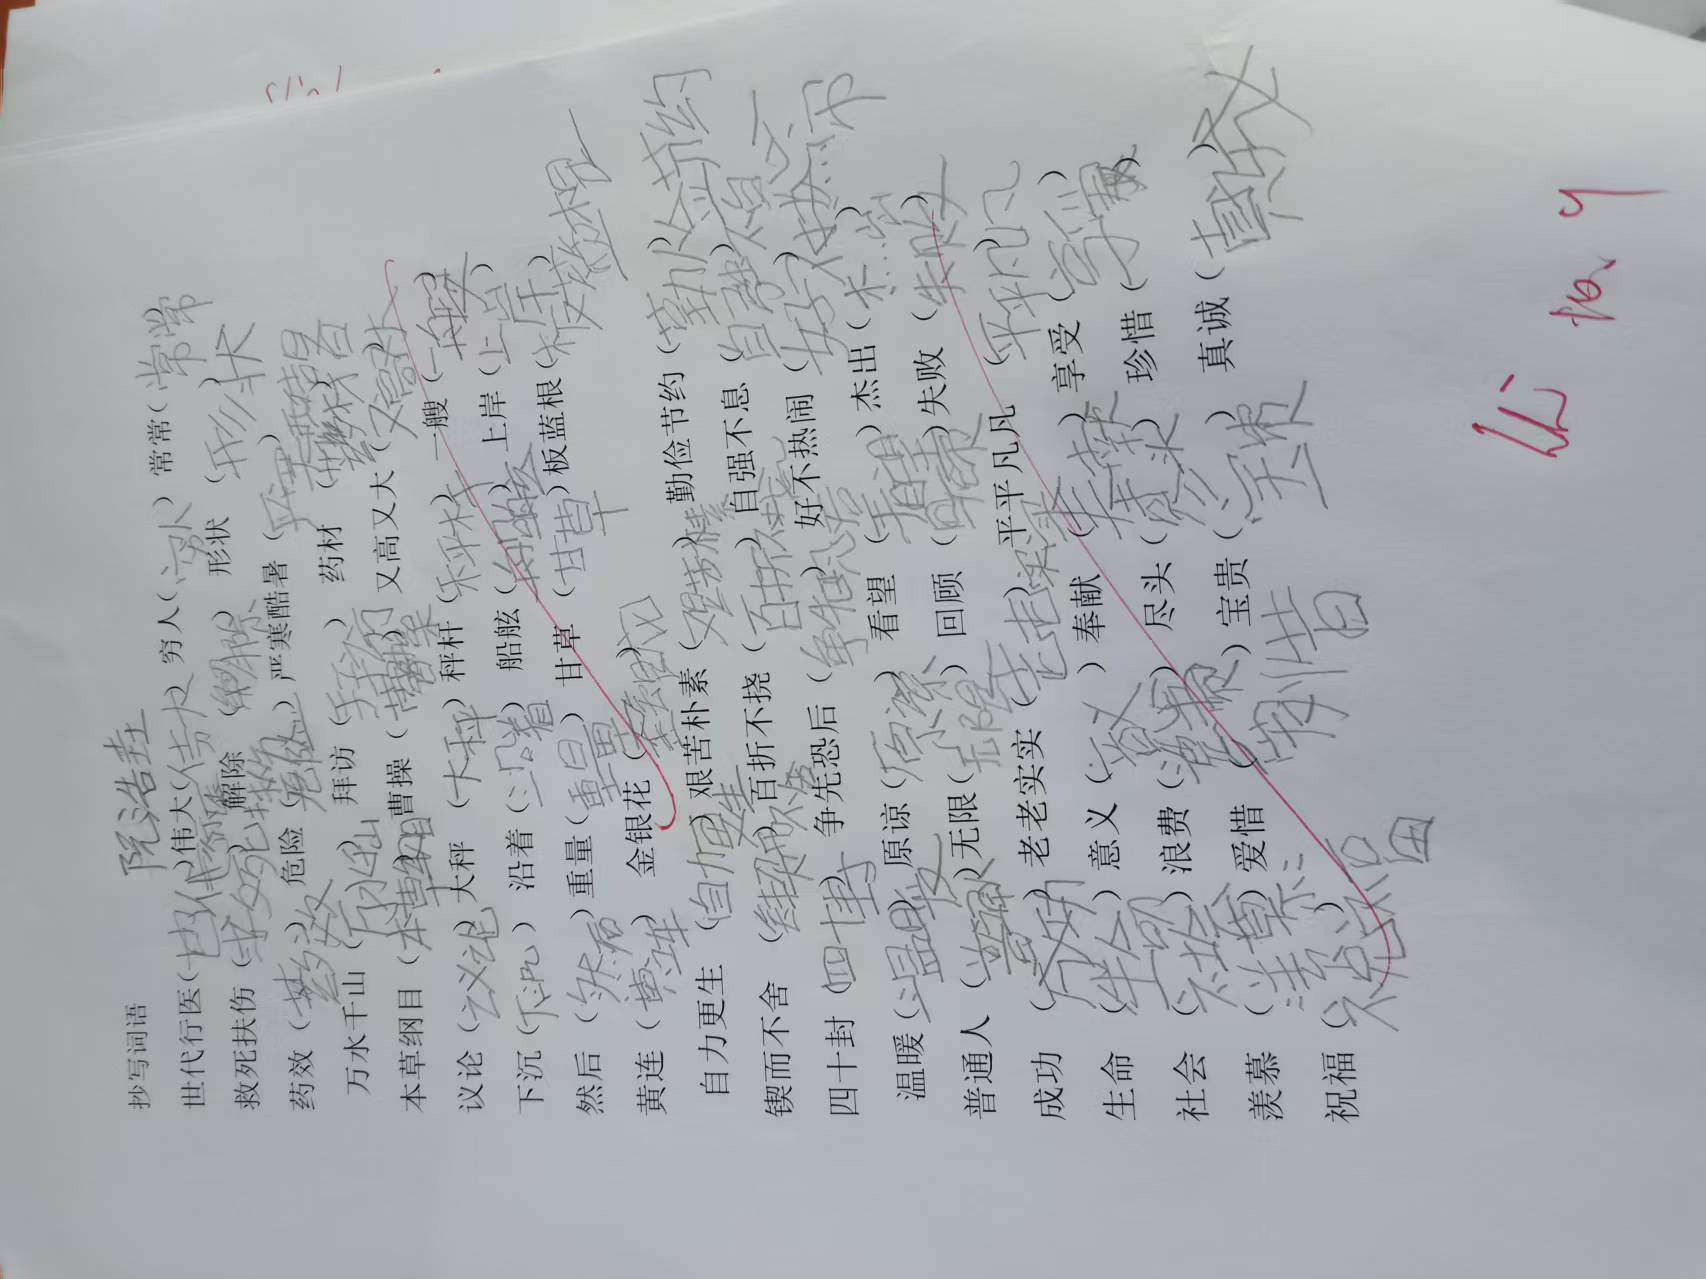 阮浩
抄写词语
世代行医（世代行医）伟大（伟大）穷人（穷人）常常（常常）
救死扶伤（救死扶伤）解除（解除）形状（形状）
药效（药效）危险（危险）严寒酷暑（严寒酷暑）
万水千山（万水千山）拜访（拜访）药材（药材）
本草纲目（本草纲目）曹操（曹操）又高又大（又高又大）
议论（议论）大秤（大秤）秤杆（秤杆）一艘（一艘）
下沉（下沉）沿着（沿着）船舷（船舷）上岸（上岸）
然后（然后）重量（重量）甘草（甘草）板蓝根（板蓝根）
黄连（黄连）金银花（）
自力更生（自力更生）艰苦朴素（艰苦朴素）勤俭节约（勤俭节约）
锲而不舍（锲而不舍）百折不挠（百折不挠）自强不息（自强不息）
四十封（四十封）争先恐后（争先恐后）好不热闹（好不热闹）
温暖（温暖）原谅（原谅）看望（看望）杰出（杰出）
普通人（普通人）无限（无限）回顾（回顾）失败（失败）
成功（成功）老老实实（老老实实）平平凡凡（平平凡凡）
生命（生命）意义（意义）奉献（奉献）享受（享受）
社会（社会）浪费（浪费）尽头（尽头）珍惜（珍惜）
羡慕（羡慕）爱惜（爱惜）宝贵（宝贵）真诚（真诚）
祝福（祝福）